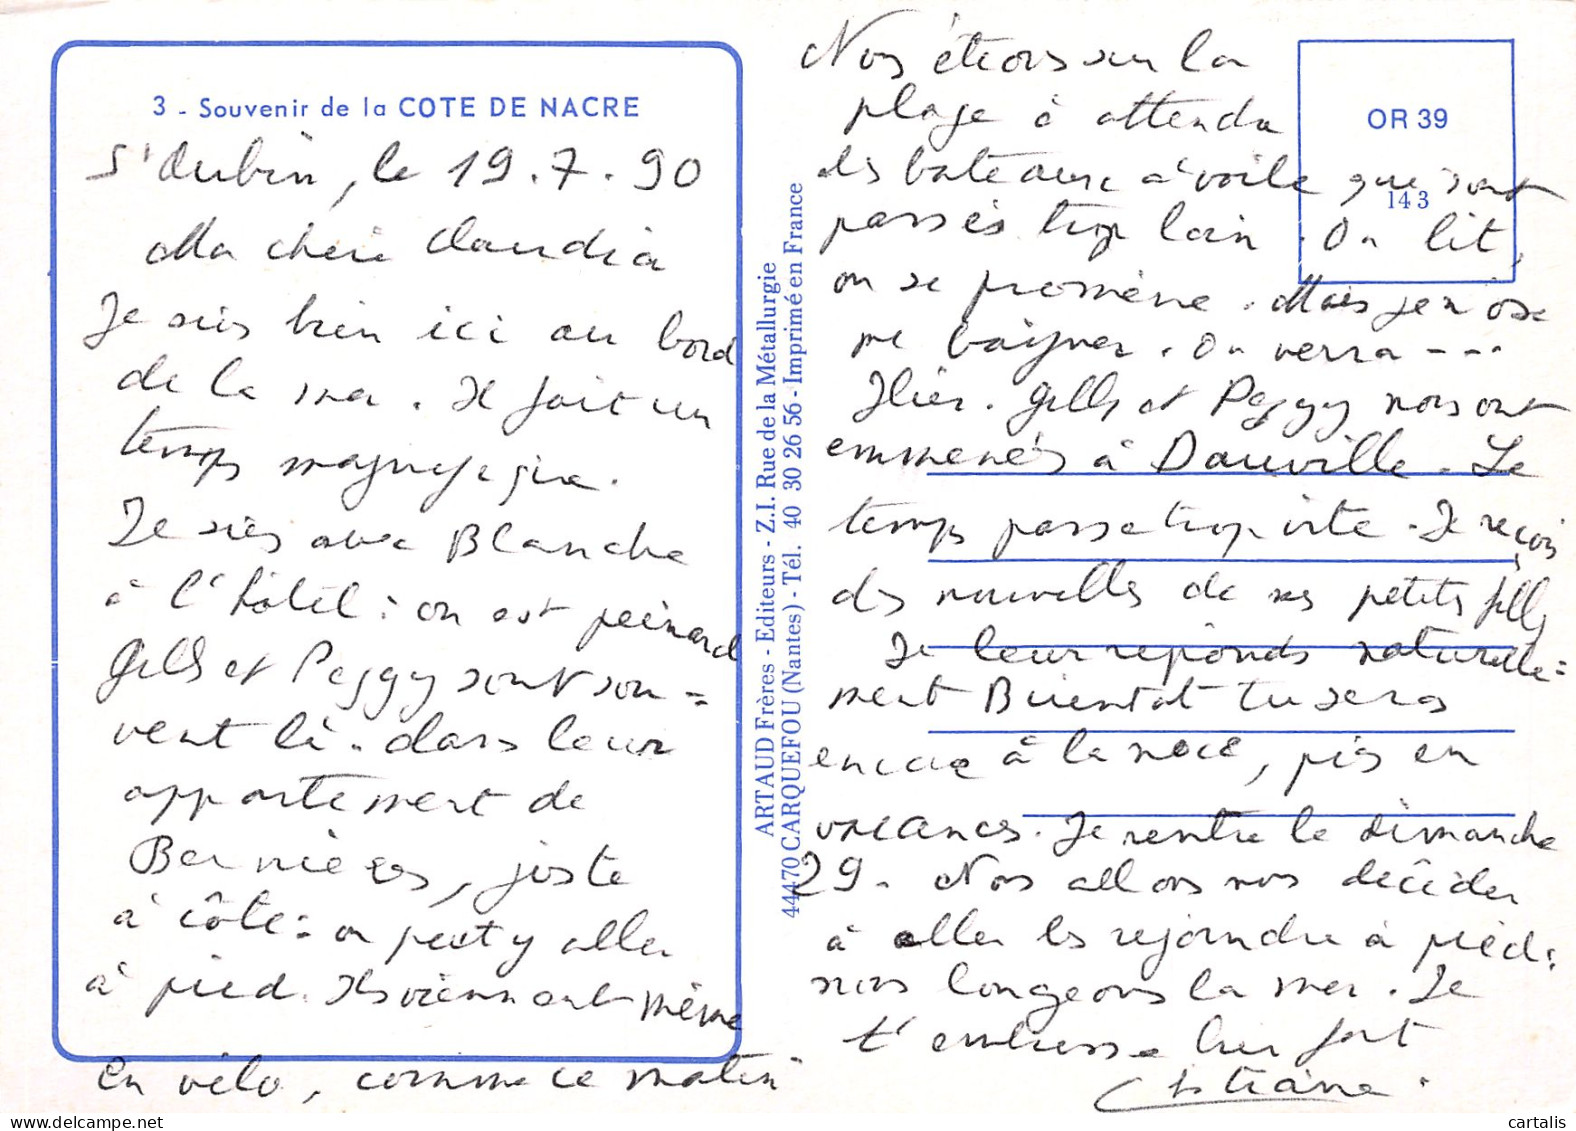 3 - Souvenir de la COTE DE NACRE
St Aubin, le 19.7.90
Ma chère Claudia
Je suis bien ici au bord
de la mer. Il fait un
temps magnifique.
Je suis avec Blanche
à l'hôtel : on est peinard
Gilles et Peggy sont sou=
vent là. dans leur
appartement de
Bernières, juste
à côté : on peut y aller
à pied. Ils viennent même
en vélo, comme ce matin
ARTAUD Frères - Editeurs - Z.I. Rue de la Métallurgie
44470 CARQUEFOU (Nantes) - Tél. 40 30 26 56 - Imprimé en France
OR 39
143
Nous étions sur la
plage à attendre
les bateaux à voile qui sont
passés trop loin. On lit,
on se promène. Mais je n'ose
me baigner. On verra - - -
Hier. Gilles et Peggy nous ont
emmenés à Dauville. Le
temps passe trop vite. Je reçois
des nouvelles de mes petites filles
Je leur réponds naturelle=
ment Bientôt tu seras
encore à la noce, puis en
vacances. Je rentre le dimanche
29. Nous allons nous décider
à aller les rejoindre à pied.
nous longeons la mer. Je
t'embrasse bien fort
Christiane.
cartalis